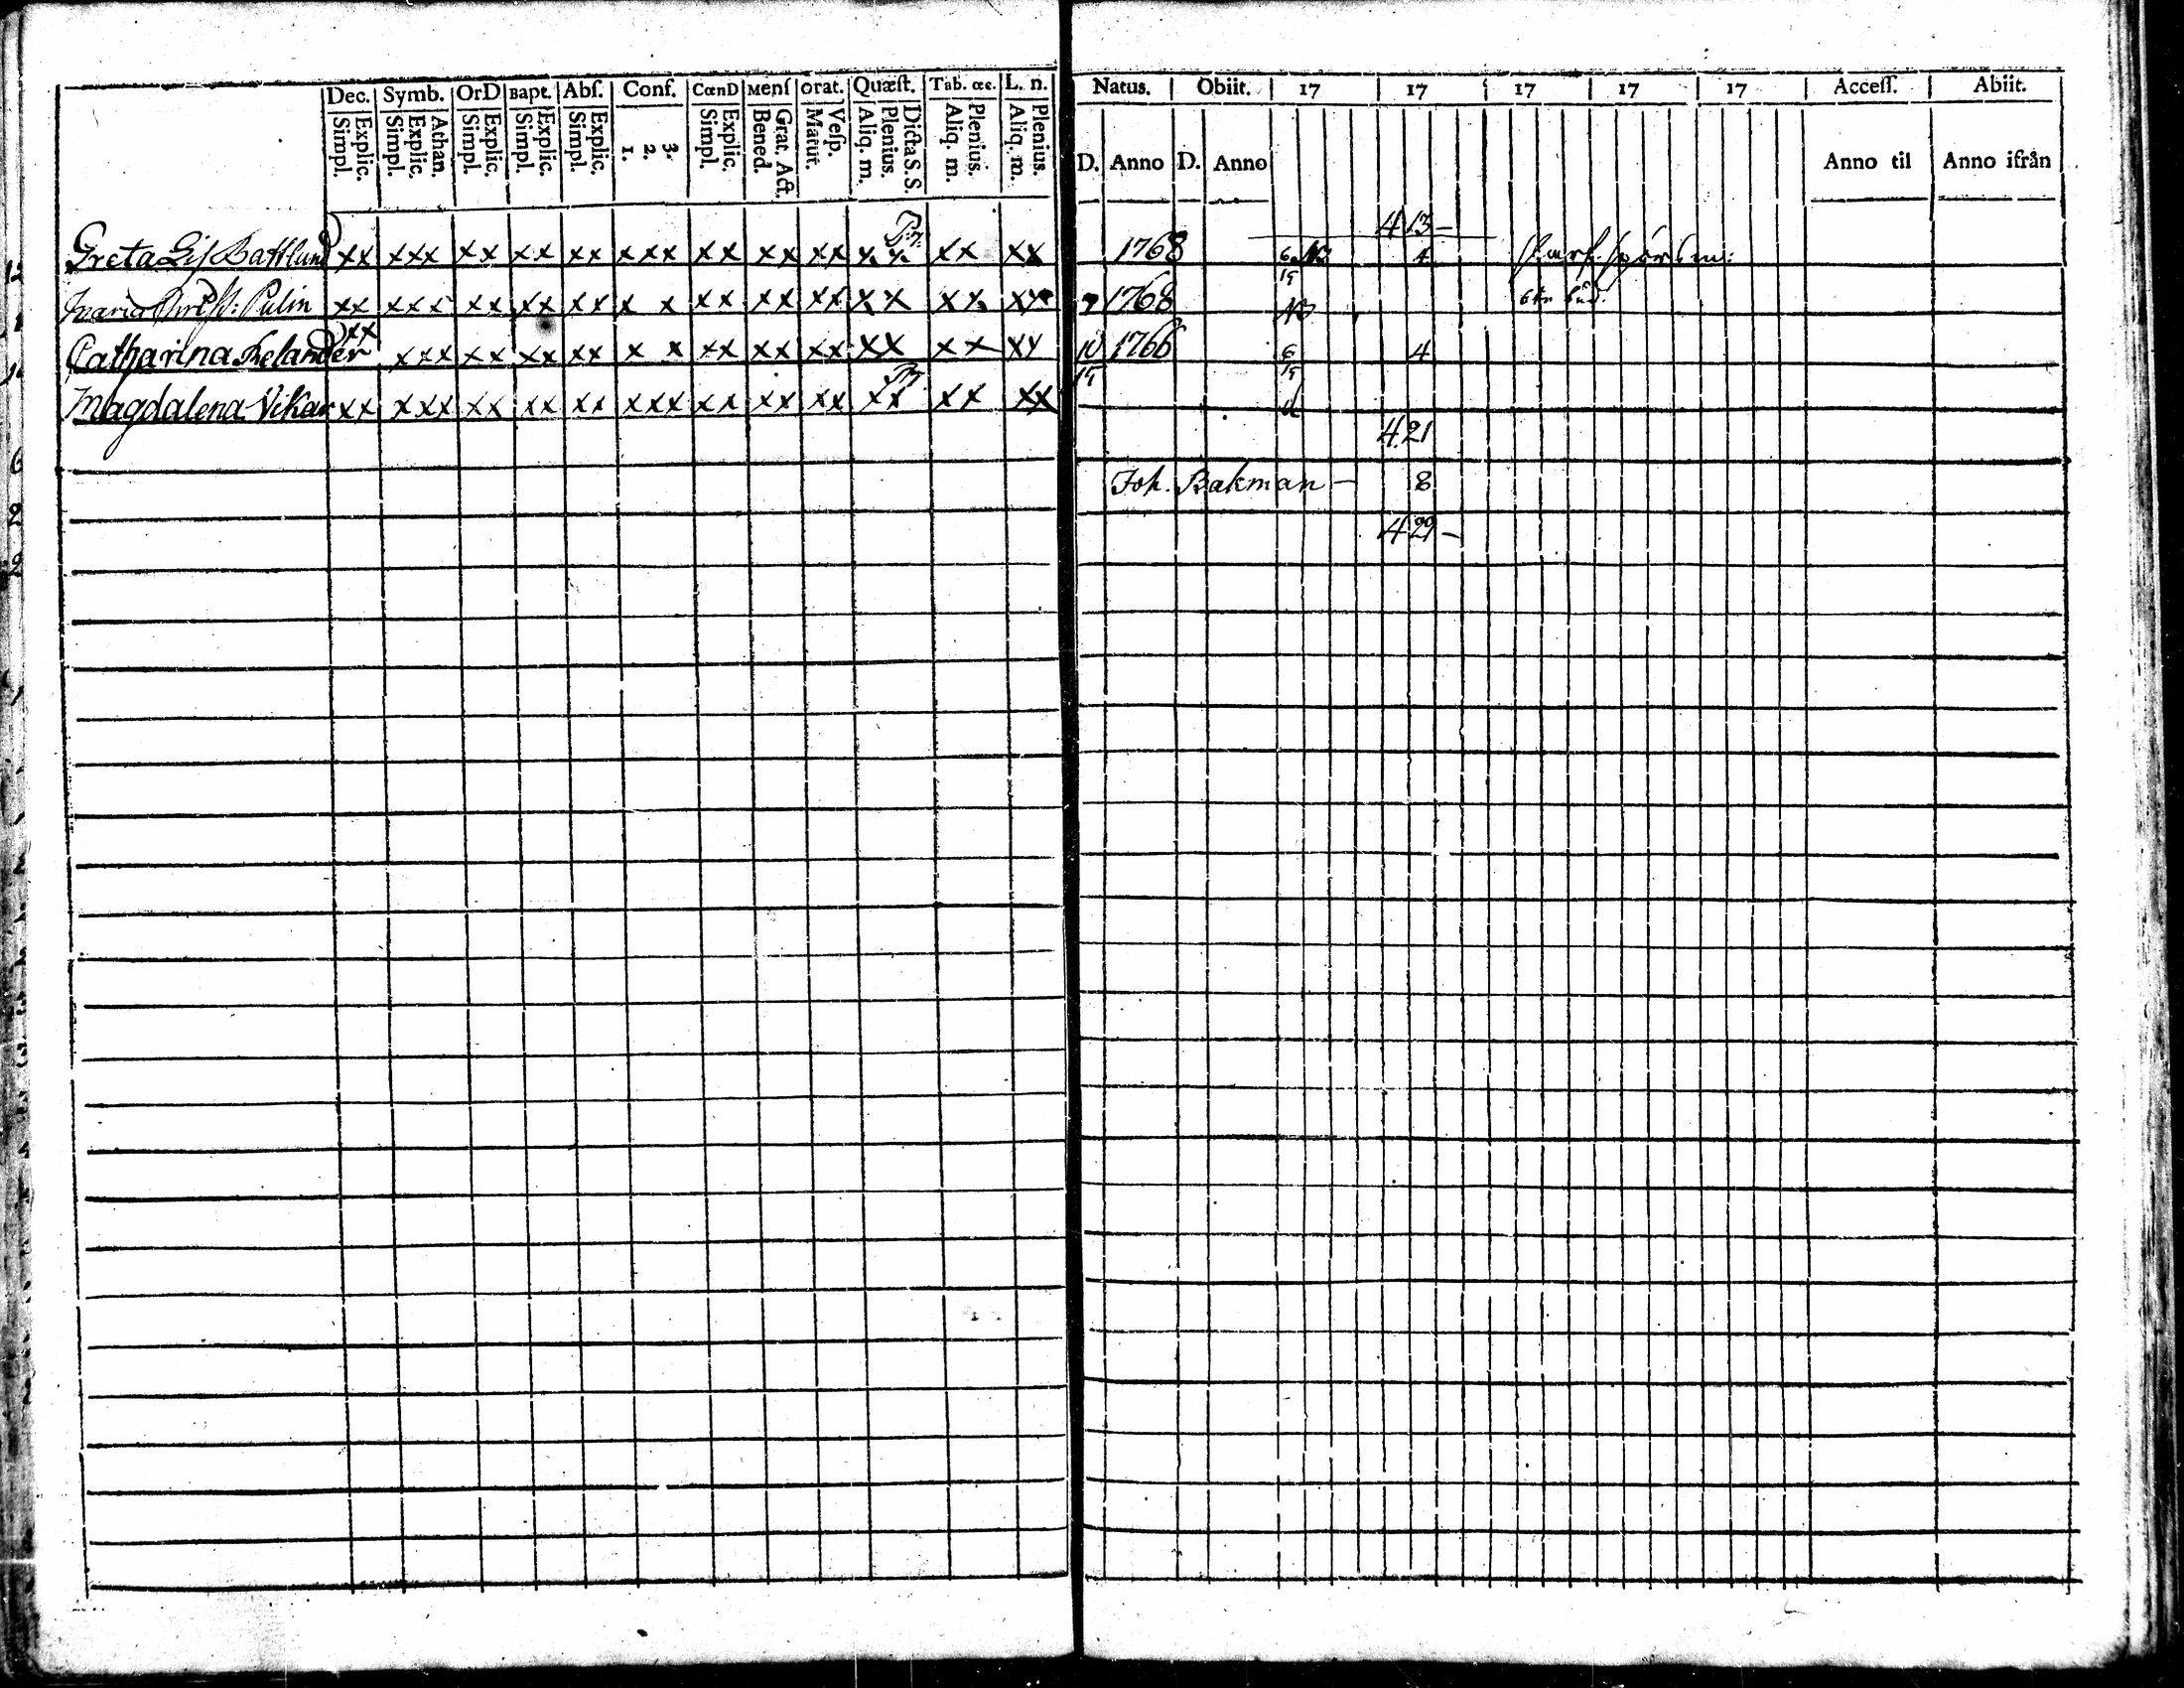 Dec. Symb. OrD Bapt. Abſ. Conf. CœnD Menſ orat. Quæſt. Tab. œc. L. n.
Explic. Simpl. Athan. Explic. Simpl. Explic. Simpl. Explic. Simpl. Explic. Simpl. 3. 2. 1. Explic. Simpl. Grat. Act. Bened. Veſp. Matut. Dicta S.S. Plenius. Aliq. m. Plenius. Aliq. m. Plenius. Aliq. m.
Natus. Obiit. 17 17 17 17 17 Acceſſ. Abiit.
D. Anno D. Anno Anno til Anno ifrån
413-
Greta Liſ xx xxx xx xx xx xxx xx xx xx xx xx xx 1768 6 NB 4
19
Maria Palin xx xxx xx xx xx x x xx xx xx xx xx xx 7 1768 NB
Catharina xx xxx xx xx xx x x xx xx xx xx xx xx 10 1766 6 4
19 19
Magdalena Vikar xx xxx xx xx xx xxx xx xx xx xx xx xx
421
Joh. Bakman - 8
429-